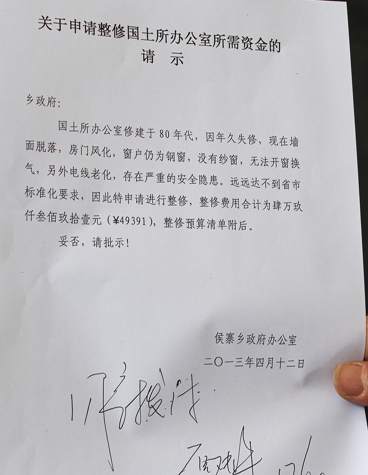 关于申请整修国土所办公室所需资金的
请 示
乡政府：
国土所办公室修建于 80 年代，因年久失修，现在墙
面脱落，房门风化，窗户仍为钢窗，没有纱窗，无法开窗换
气，另外电线老化，存在严重的安全隐患。远远达不到省市
标准化要求，因此特申请进行整修，整修费用合计为肆万玖
仟叁佰玖拾壹元（¥49391），整修预算清单附后。
妥否，请批示！
侯寨乡政府办公室
二〇一三年四月十二日